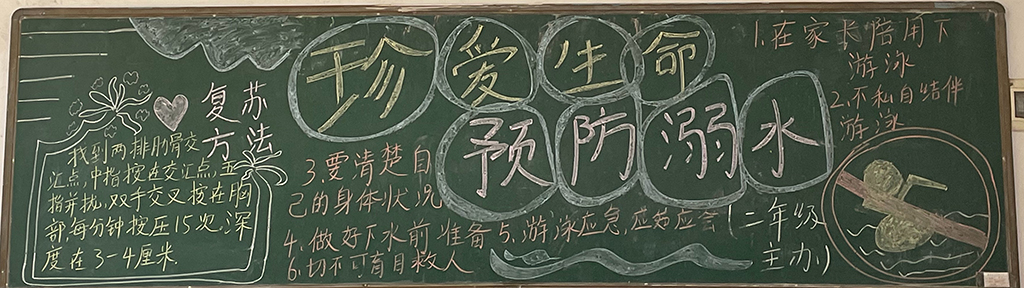 珍爱生命
预防溺水
复苏
方法
找到两排肋骨交
汇点,中指按在交汇点,五
指开扰,双手交叉按在胸
部,每分钟按压15次,深
度在3-4厘米.
1.在家长陪用下
游泳
2.不私自结伴
游泳
3.要清楚自
己的身体状况
4.做好下水前准备
5.游泳应急,应急应会
6.切不可盲目救人
(二年级
主办)